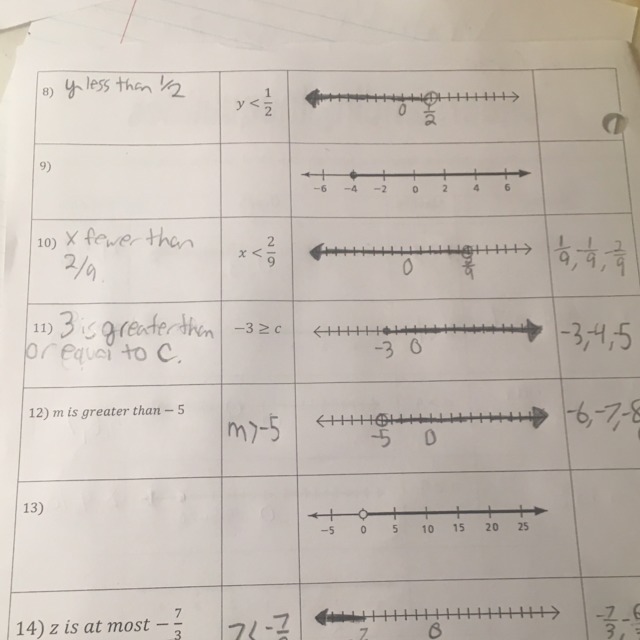 8) y less than 1/2
y < 1/2
0 1/2
9)
-6 -4 -2 0 2 4 6
10) x fewer than
2/9.
x < 2/9
0 2/9
1/9, -1/9, -2/9
11) 3 is greater than
or equal to C.
-3 ≥ c
-3 0
-3,-4,5
12) m is greater than - 5
m>-5
-5 0
-6,-7,-8
13)
-5 0 5 10 15 20 25
14) z is at most - 7/3
0